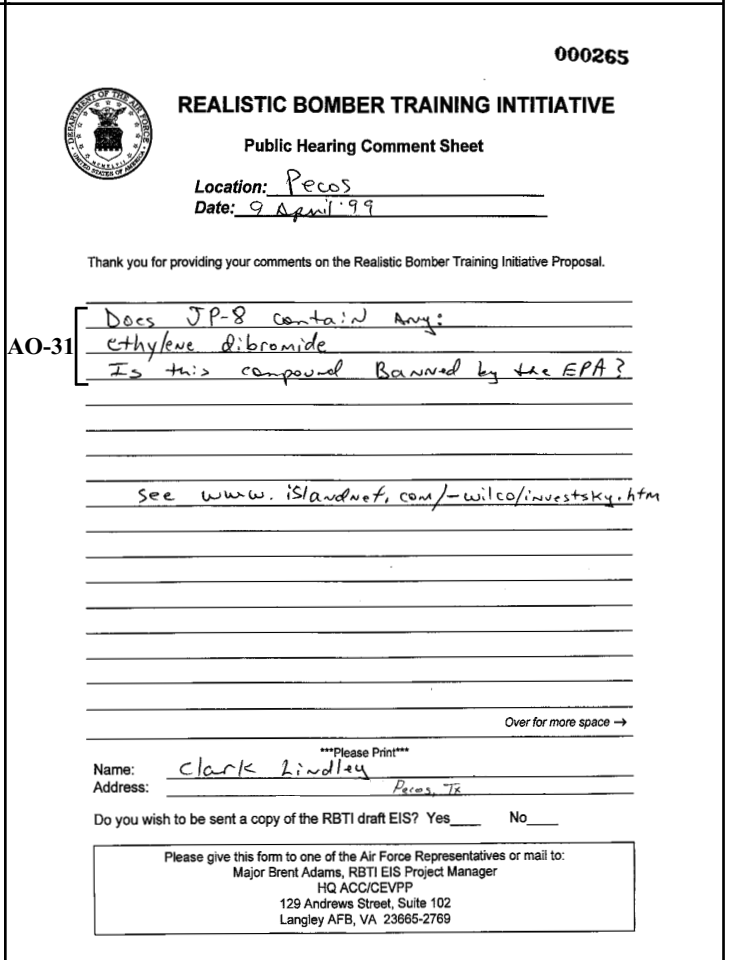 000265
REALISTIC BOMBER TRAINING INTITIATIVE
Public Hearing Comment Sheet
Location: Pecos
Date: 9 April '99
Thank you for providing your comments on the Realistic Bomber Training Initiative Proposal.
Does JP-8 contain Any:
AO-31 ethylene dibromide
Is this compound Banned by the EPA?
see www.islandnet.com/-wilco/investsky.htm
Over for more space →
***Please Print***
Name: Clark Lindley
Address: Pecos, Tx
Do you wish to be sent a copy of the RBTI draft EIS? Yes____ No____
Please give this form to one of the Air Force Representatives or mail to:
Major Brent Adams, RBTI EIS Project Manager
HQ ACC/CEVPP
129 Andrews Street, Suite 102
Langley AFB, VA 23665-2769